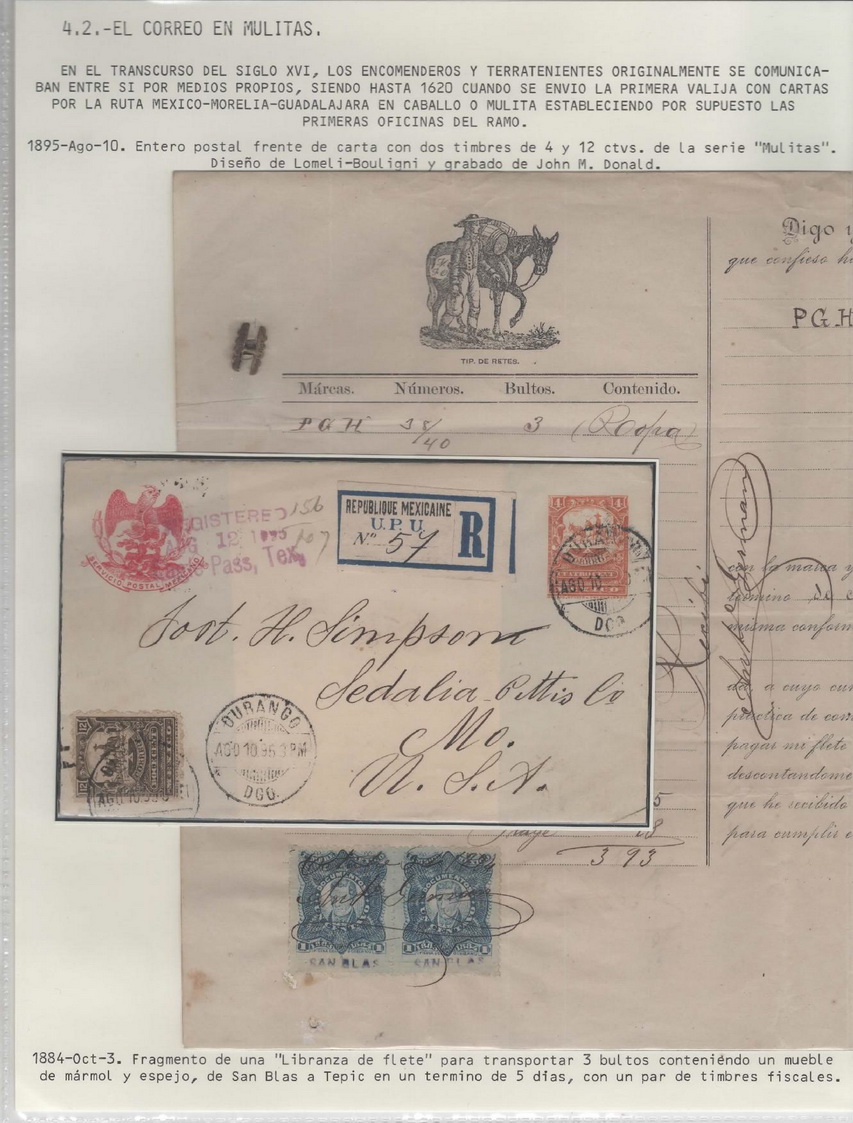 4.2.-EL CORREO EN MULITAS.
EN EL TRANSCURSO DEL SIGLO XVI, LOS ENCOMENDEROS Y TERRATENIENTES ORIGINALMENTE SE COMUNICA-
BAN ENTRE SI POR MEDIOS PROPIOS, SIENDO HASTA 1620 CUANDO SE ENVIO LA PRIMERA VALIJA CON CARTAS
POR LA RUTA MEXICO-MORELIA-GUADALAJARA EN CABALLO O MULITA ESTABLECIENDO POR SUPUESTO LAS
PRIMERAS OFICINAS DEL RAMO.
1895-Ago-10. Entero postal frente de carta con dos timbres de 4 y 12 ctvs. de la serie "Mulitas".
Diseño de Lomelí-Bouligni y grabado de John M. Donald.
Digo y
que confieso ha
PGH
TIP. DE RETES.
Márcas. Números. Bultos. Contenido.
PGH 38/40 3 (Ropa)
GISTERED 156
12 1895 107
Pass, Tex.
SERVICIO POSTAL MEXICANO
REPUBLIQUE MEXICAINE
U.P.U.
Nº 57 R
4 4
DURANGO
AGO 10
DGO.
Post. H. Simpson
Sedalia Pettis Co
Mo.
U.S.A.
12
AGO 10
DURANGO
AGO 10.95 3 PM
DGO.
Recibí
con la marca y
término de
misma conform
da, a cuyo cum
práctica de com
pagar mi flete
descontandome
que he recibido
para cumplir
5
18
3 93
DOCUMENTOS
DOCUMENTOS
SAN BLAS SAN BLAS
1884-Oct-3. Fragmento de una "Libranza de flete" para transportar 3 bultos conteniéndo un mueble
de mármol y espejo, de San Blas a Tepic en un termino de 5 días, con un par de timbres fiscales.